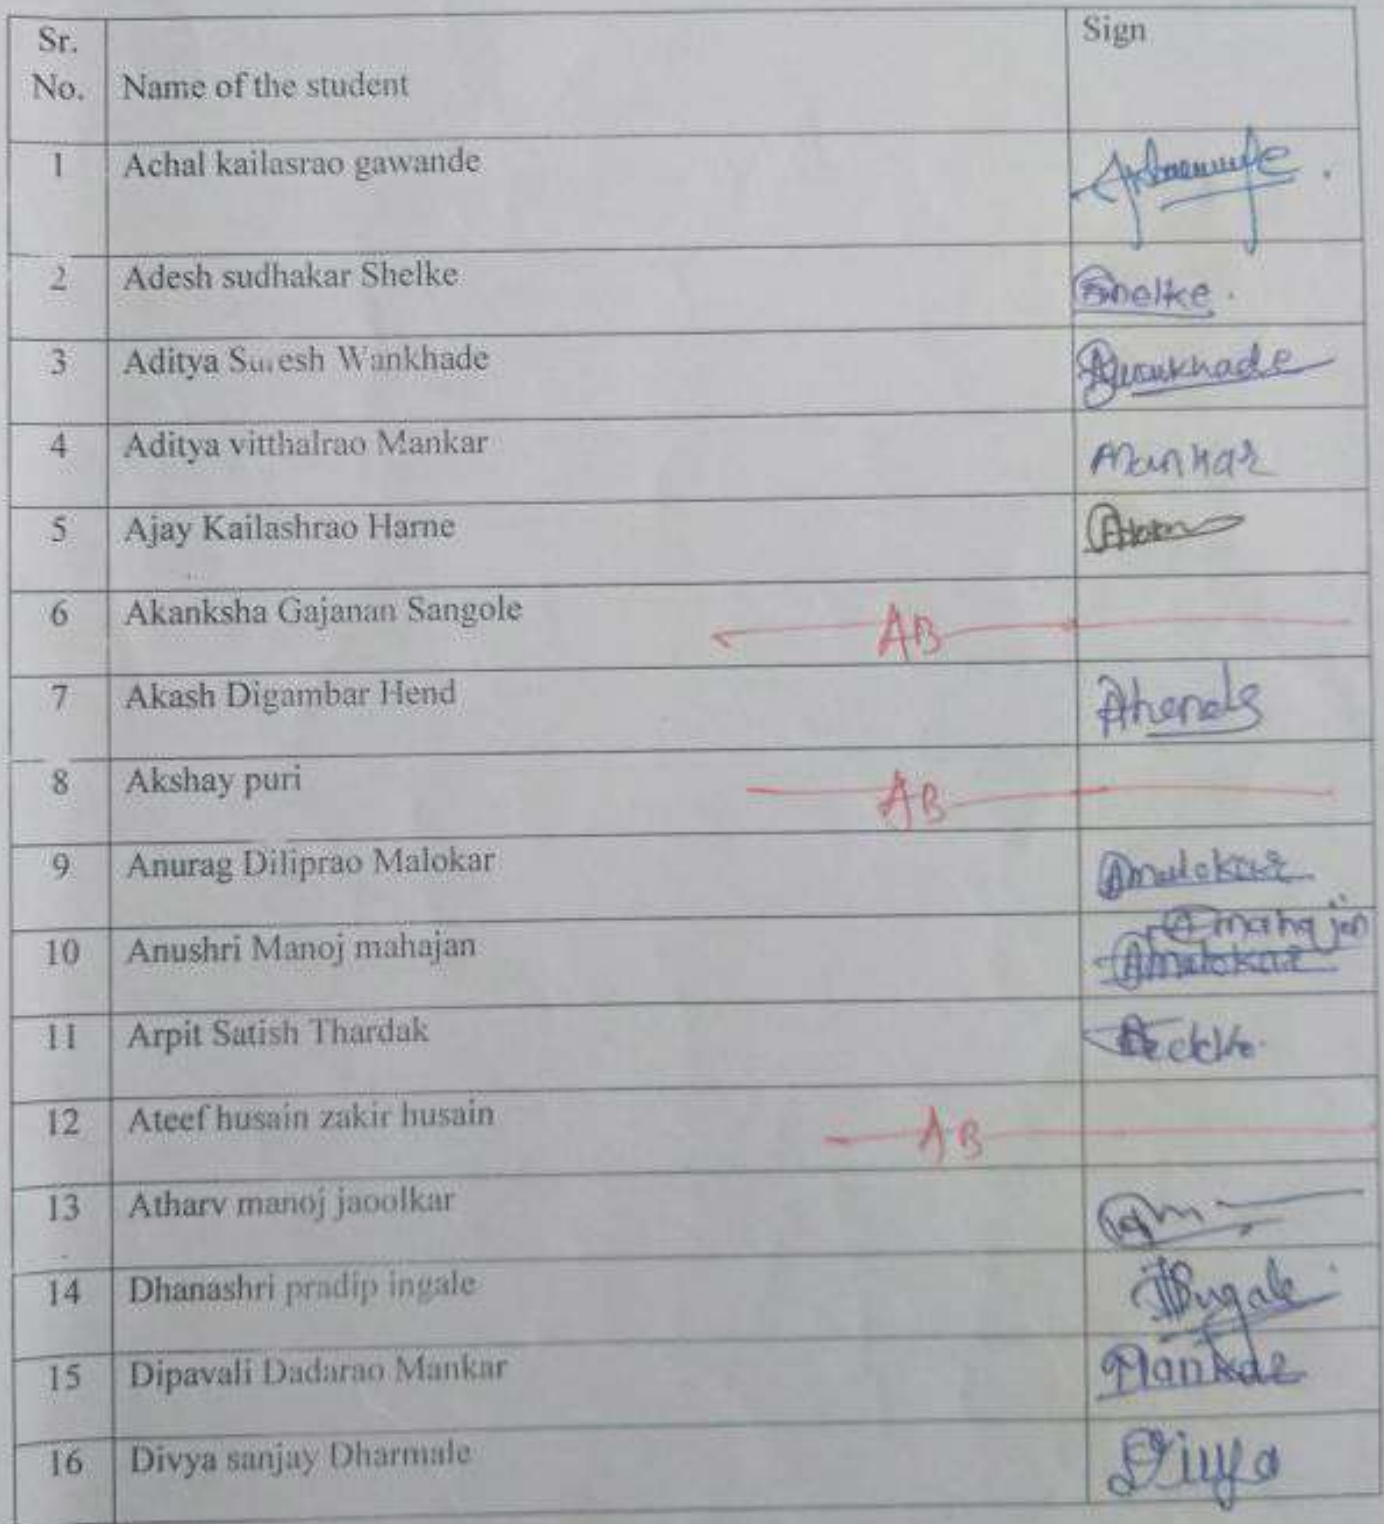 Sr. No. Name of the student Sign
1 Achal kailasrao gawande
2 Adesh sudhakar Shelke Shelke.
3 Aditya Suresh Wankhade Awankhade
4 Aditya vitthalrao Mankar Mankar
5 Ajay Kailashrao Harne
6 Akanksha Gajanan Sangole AB
7 Akash Digambar Hend
8 Akshay puri AB
9 Anurag Diliprao Malokar Amalokar
10 Anushri Manoj mahajan Amahajan Amalokar
11 Arpit Satish Thardak
12 Ateef husain zakir husain AB
13 Atharv manoj jaoolkar
14 Dhanashri pradip ingale
15 Dipavali Dadarao Mankar Mankar
16 Divya sanjay Dharmale Divya